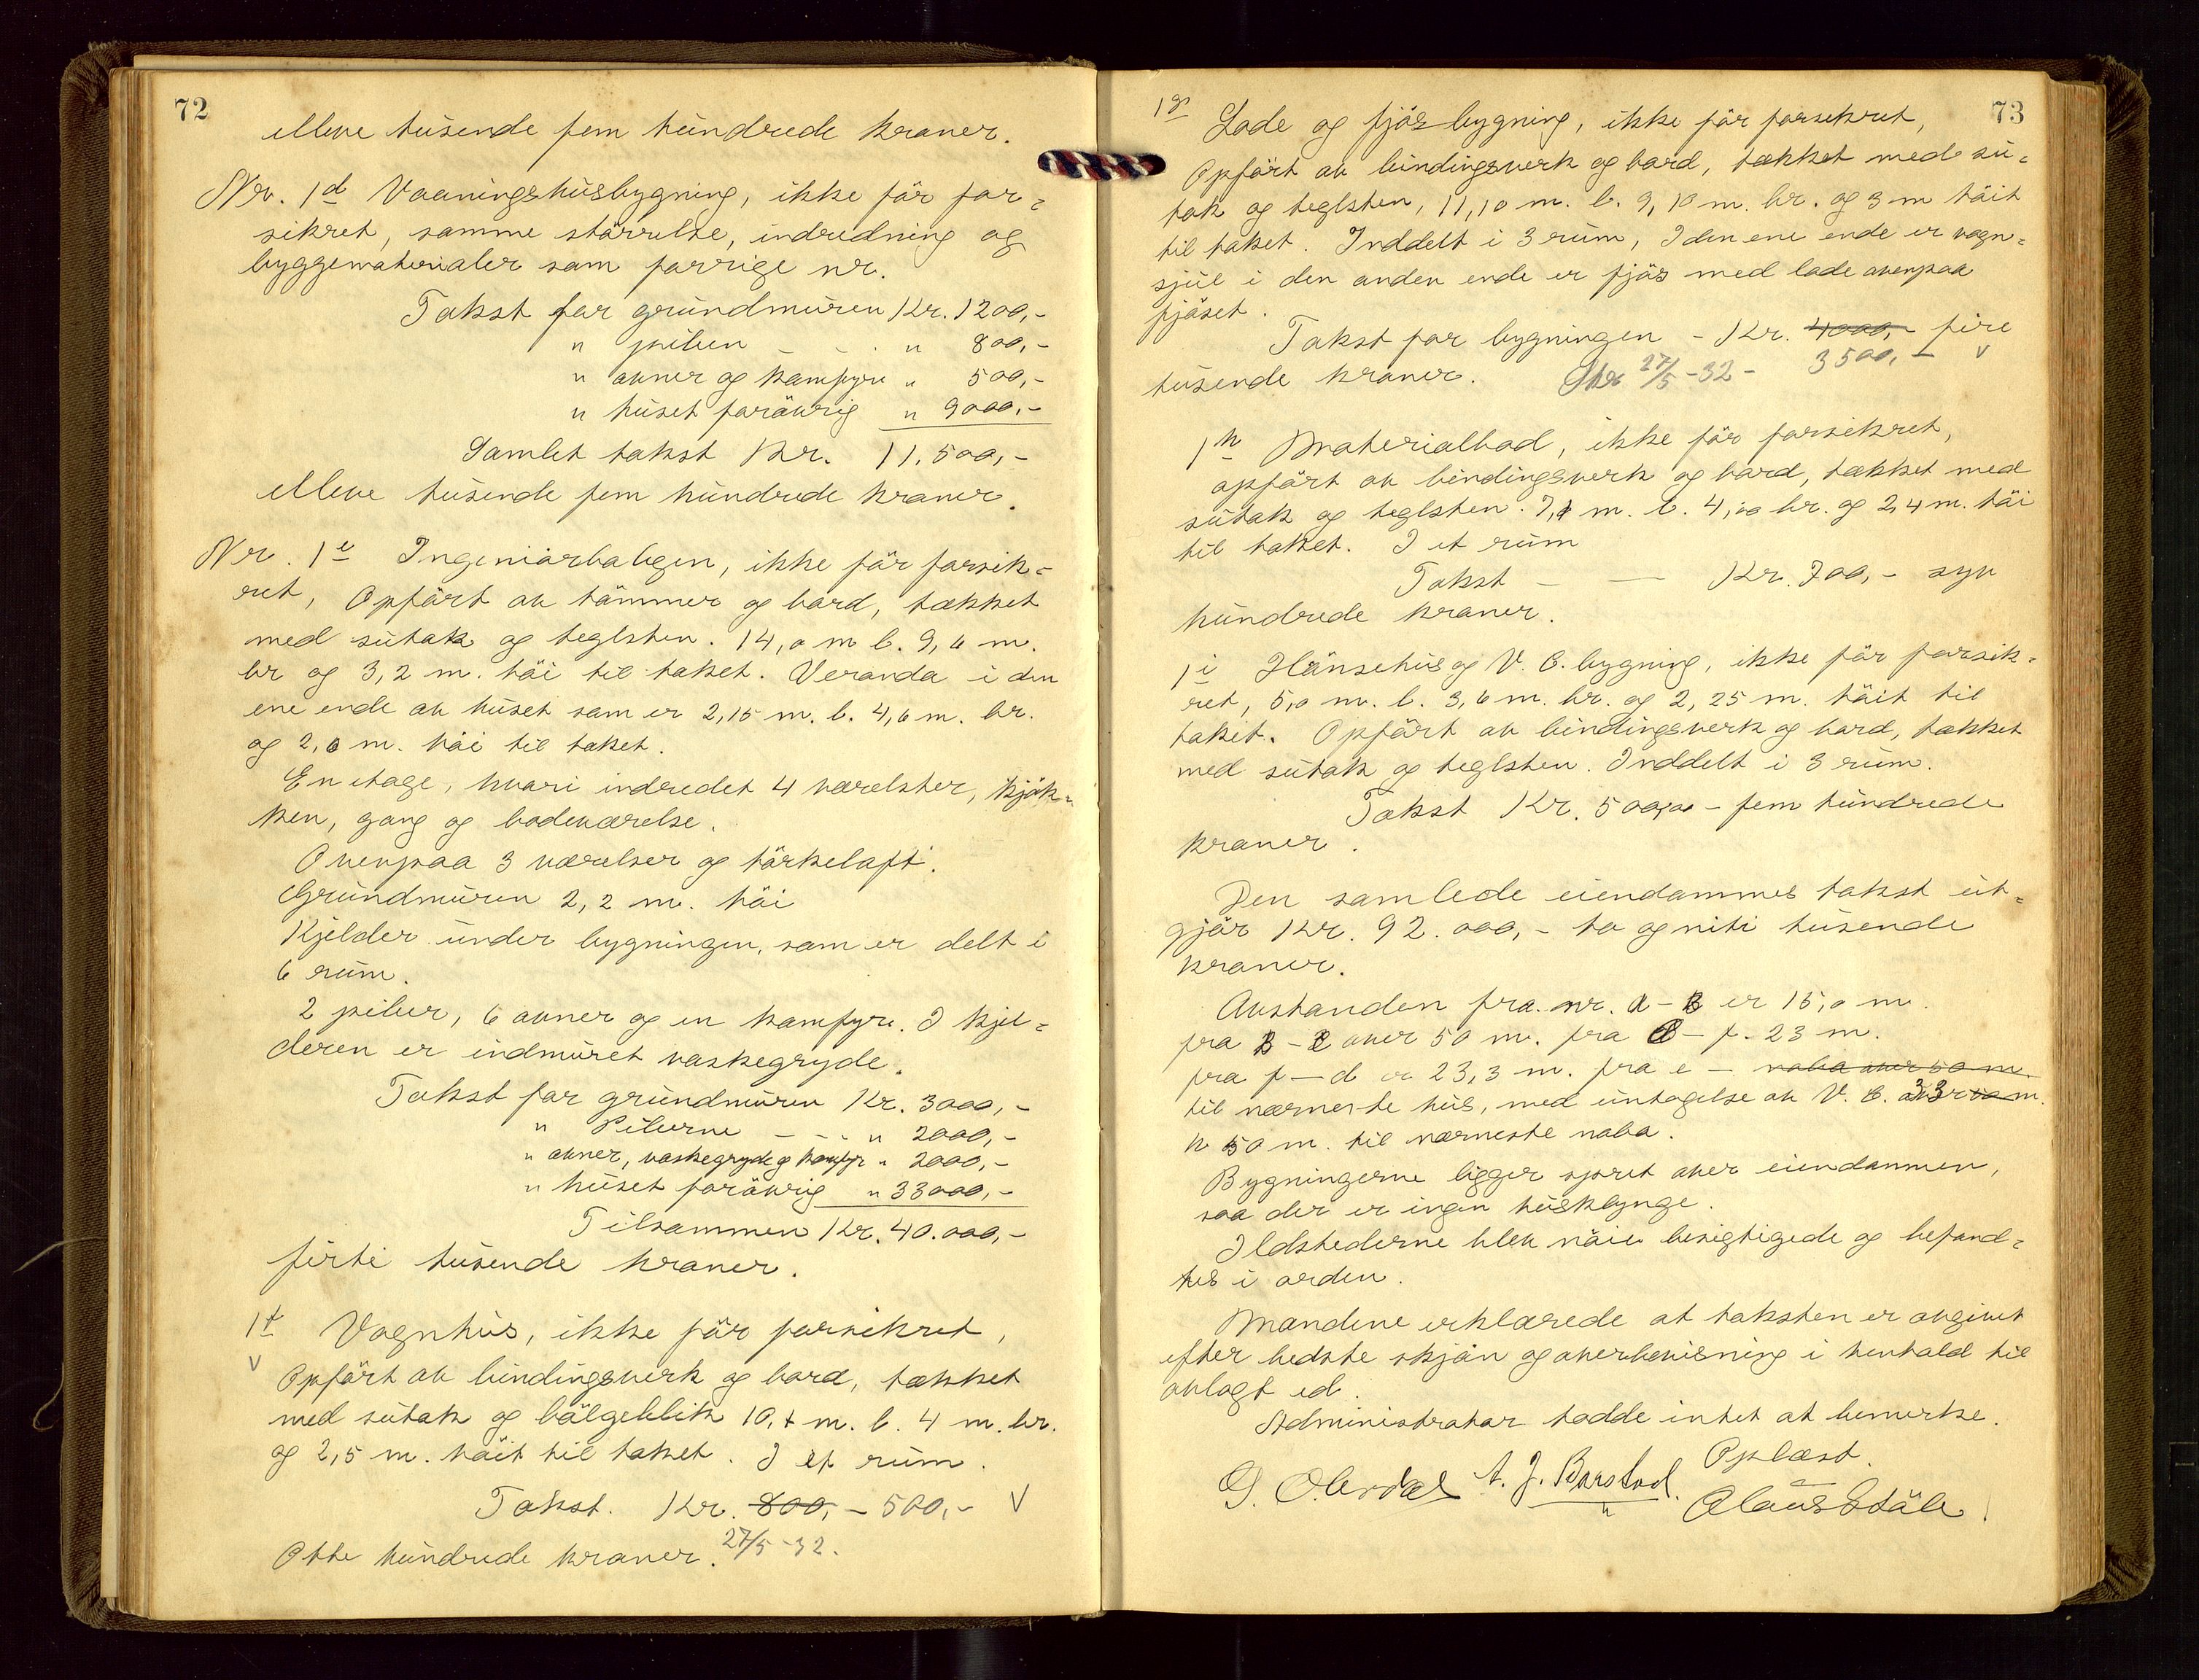 72
elleve tusende fem hundrede kroner.
Nr. 1d Vaaningshusbygning, ikke för for-
sikret, samme störrelse, indredning og
byggematerialer som forrige nr.
Takst for grundmuren Kr. 1200,-
" piben - - . " 800,-
" ovner og komfyre " 500,-
" huset forövrig " 9000,-
Samlet takst Kr. 11.500,-
elleve tusende fem hundrede kroner.
Nr. 1e Ingeniörboligen, ikke för forsik-
ret, Opfört av tömmer og bord, tækket
med sutak og teglsten. 14,0 m l. 9,6 m.
br og 3,2 m. höi til taket. Veranda i den
ene ende av huset som er 2,15 m. l. 4,6 m. br.
og 2,6 m. höi til taket.
En etage, hvori indredet 4 værelster, kjök-
ken, gang og badeværelse.
Ovenpaa 3 værelser og törkeloft.
Grundmuren 2,2 m. höi
Kjelder under bygningen, som er delt i
6 rum.
2 piber, 6 ovner og en komfyre. I kjel-
deren er indmuret vaskegryde.
Takst for grundmuren Kr. 3000,-
" Piberne - - - " 2000,-
" ovner, vaskegryde og komfyr " 2000,-
" huset forövrig " 33000,-
Tilsammen Kr. 40.000,-
firti tusende kroner.
1f Vognhus, ikke för forsikret,
V Opfört av bindingsverk og bord, tækket
med sutak og bölgeblik 10,+ m. l. 4 m. br.
og 2,5 m. höit til taket. I et rum.
Takst. Kr. 800,- 500,- V
Otte hundrede kroner. 27/5-32.
73
1g Lade og fjösbygning, ikke för forsikret,
Opfört av bindingsverk og bord, tækket med su-
tak og teglsten, 11,10 m. l. 9,10 m. br. og 3 m höit
til taket. Inddelt i 3 rum, I den ene ende er vogn-
sjul i den anden ende er fjös med lade ovenpaa
fjöset.
Takst for bygningen - Kr. 4000,- fire
tusende kroner. 27/5-32- 3500,- V
1h Materialbod, ikke för forsikret,
opfört av bindingsverk og bord, tækket med
sutak og teglsten. 7,1 m. l. 4,10 br. og 2,4 m. höi
til taket. I et rum
Takst - - Kr. 700,- syv
hundrede kroner.
1i Hönsehus og V. C. bygning, ikke för forsik-
ret, 5,0 m. l. 3,6 m. br. og 2,25 m. höit til
taket. Opfört av bindingsverk og bord, tækket
med sutak og teglsten. Inddelt i 3 rum.
Takst Kr. 500,00 - fem hundrede
kroner.
Den samlede eiendommes takst ut-
gjör Kr. 92.000,- to og niti tusende
kroner.
Avstanden fra nr. a - B er 15,0 m.
fra B - C over 50 m. fra C - f. 23 m.
fra f - d er 23,3 m. fra e - nabo over 50 m.
til nærmeste hus, med untagelse av V. C. 33 m.
h 50 m. til nærmeste nabo.
Bygningerne ligger spret over eiendommen,
saa der er ingen husklynge.
Ildstederne blev nöie besigtigede og befand-
tes i orden.
Mændene erklærede at taksten er avgivet
efter bedste skjön og overbevisning i henhold til
avlagt ed.
Administrator hadde intet at bemerke.
Oplæst.
G. Oberdal A. J. Barstad. Olaus Ståle